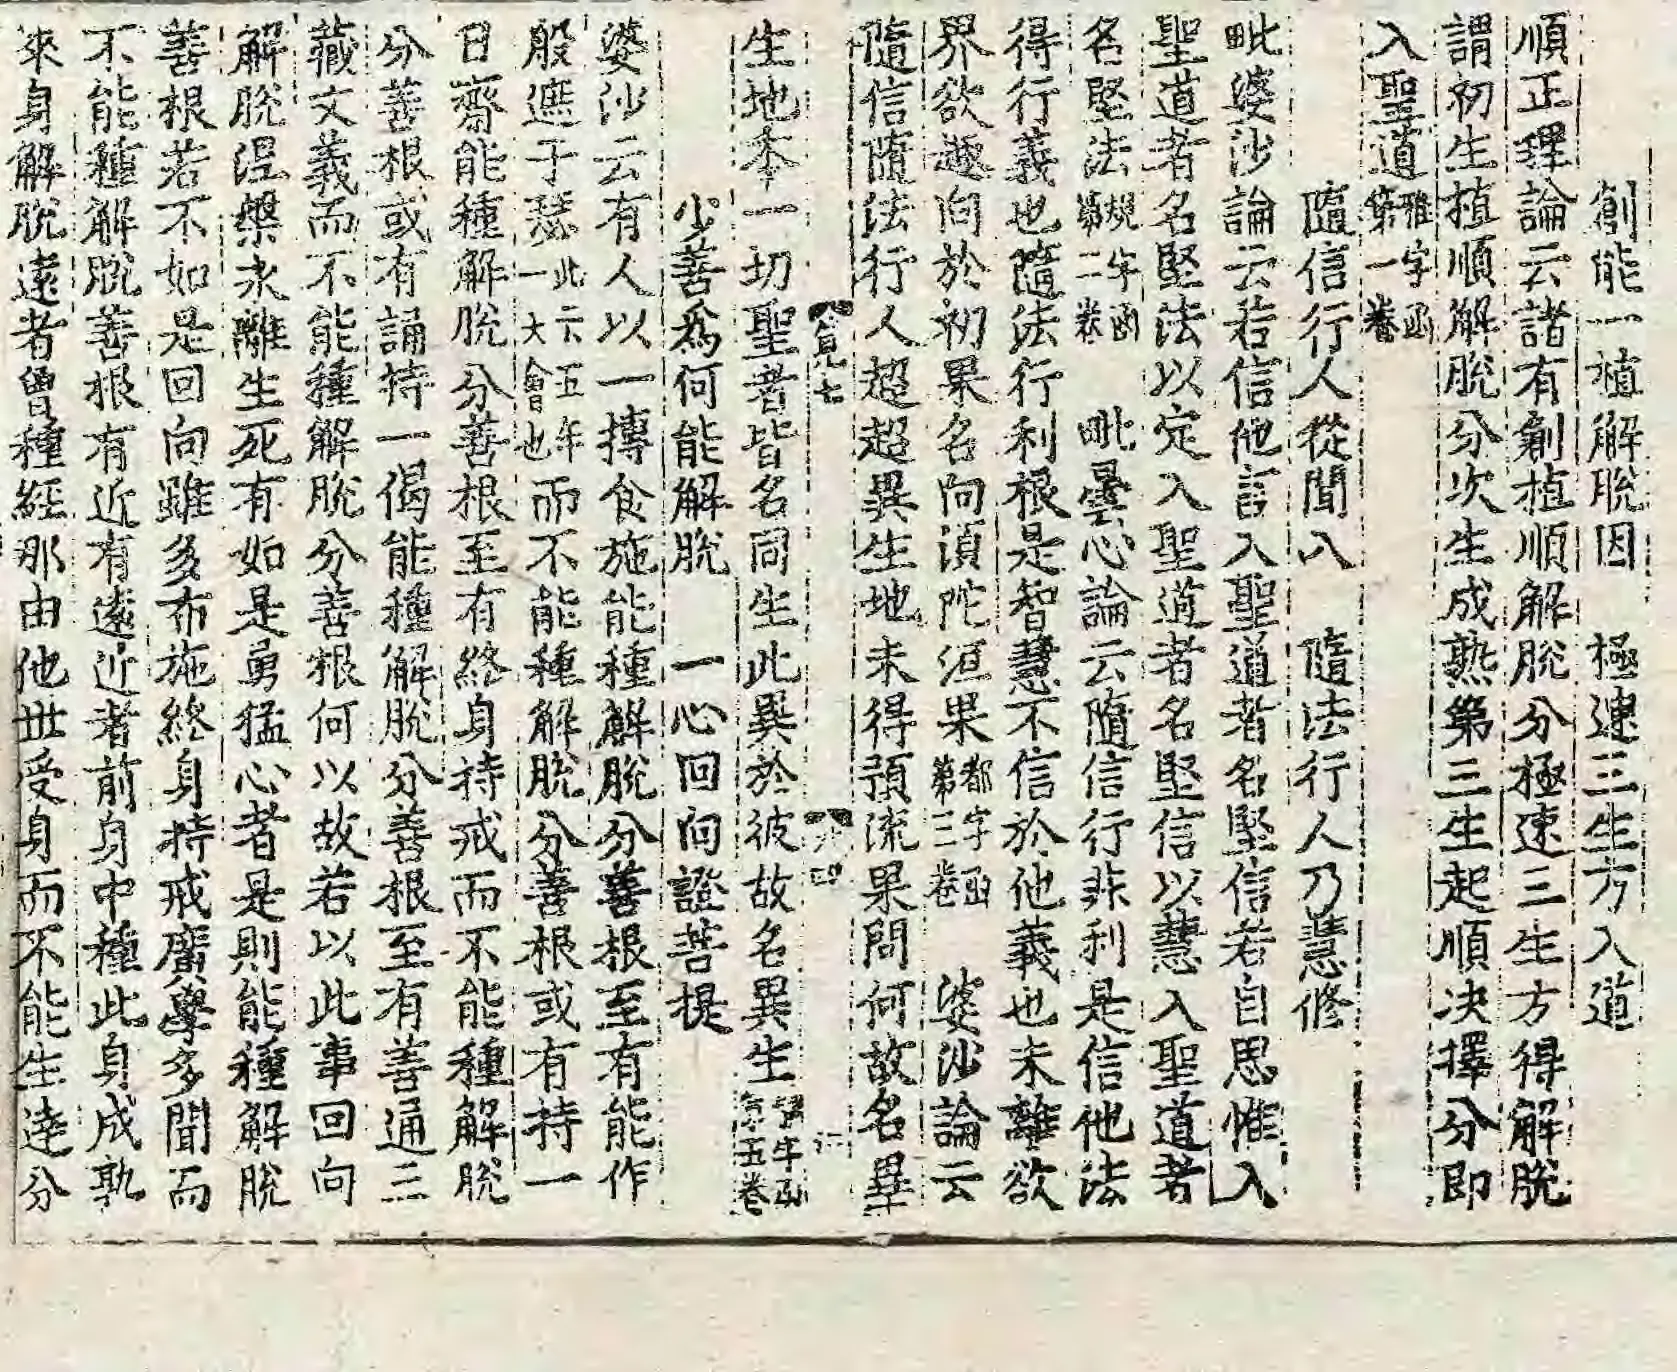 創能一植解脫因　極速三生方入道
順正理論云諸有創植順解脫分極速三生方得解脫
謂初生植順解脫分次生成熟第三生起順決擇分即
入聖道雅字函第一卷
隨信行人從聞入　隨法行人乃慧修
毗婆沙論云若信他言入聖道者名堅信若自思惟入
聖道者名堅法以定入聖道者名堅信以慧入聖道者
名堅法規字函第二卷　毗曇心論云隨信行非利是信他法
得行義也隨法行利根是智慧不信於他義也未離欲
界欲趣向於初果名向湏陀洹果都字函第三卷　婆沙論云
隨信隨法行人超超異生地未得預流果問何故名異
生地本一切聖者皆名同生此異於彼故名異生字函第五卷
少善爲何能解脫　一心回向證菩提
婆沙云有人以一摶食施能種解脫分善根至有能作
般遮于瑟此云五年一大會也而不能種解脫分善根或有持一
日齋能種解脫分善根至有終身持戒而不能種解脫
分善根或有誦持一偈能種解脫分善根至有善通三
藏文義而不能種解脫分善根何以故若以此事回向
解脫涅槃永離生死有如是勇猛心者是則能種解脫
善根若不如是回向雖多布施終身持戒廣學多聞而
不能種解脫善根有近有遠近者前身中種此身成熟
來身解脫遠者曾種經那由他世受身而不能生達分